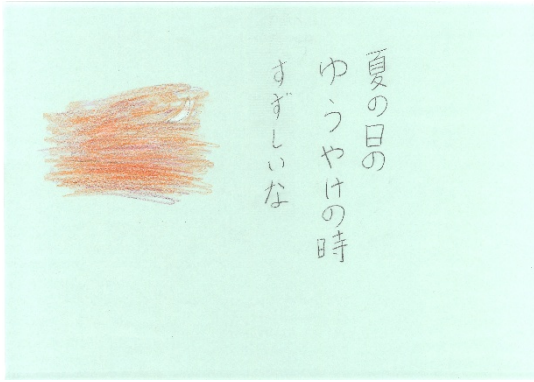 夏の日の
ゆうやけの時
すずしいな